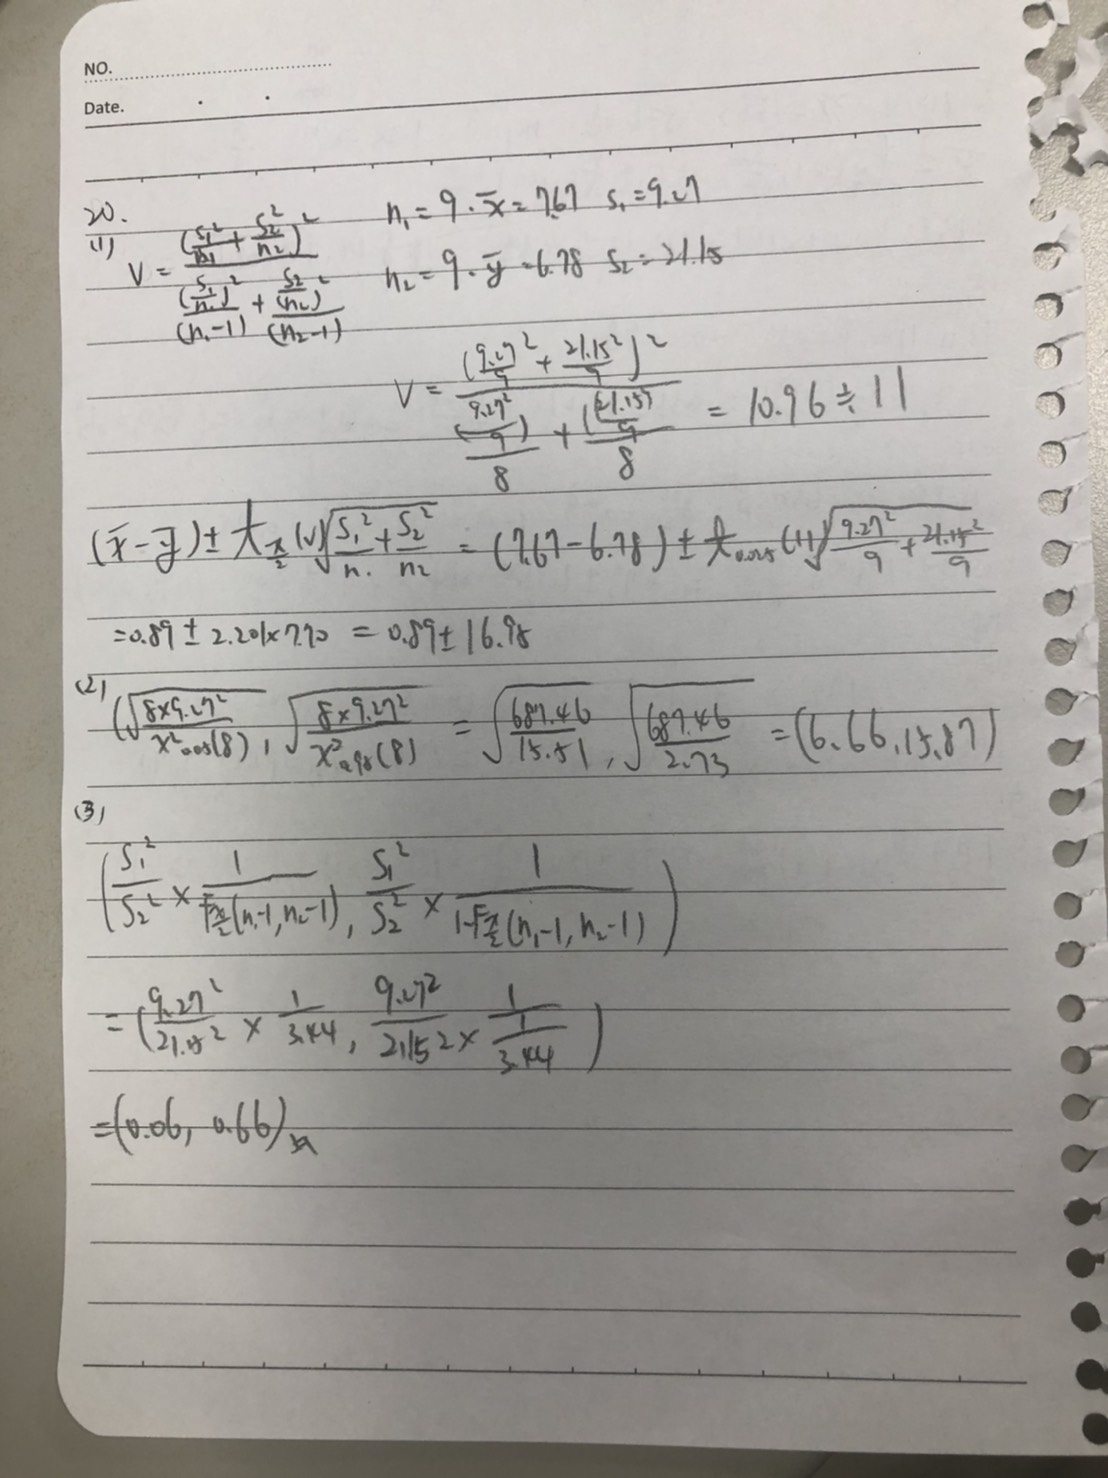 NO.
Date.
20.
(1) V = (s₁²/n₁ + s₂²/n₂)² / ((s₁/n₁)²/(n₁-1) + (s₂/(n₂)²)/(n₂-1))
n₁ = 9 . x̄ = 7.67 s₁ = 9.27
n₂ = 9 . ȳ = 6.78 s₂ = 21.15
V = (9.27²/9 + 21.15²/9)² / ((9.27²/9)/8 + ((21.15)/9)/8) = 10.96 ≒ 11
(x̄ - ȳ) ± t_{α/2}(v)√(s₁²/n₁ + s₂²/n₂) = (7.67 - 6.78) ± t_{0.025}(11)√(9.27²/9 + 21.15²/9)
= 0.89 ± 2.201 × 7.70 = 0.89 ± 16.95
(2) (√(8×9.27²/x²_{0.05}(8)), √(8×9.27²/x²_{0.95}(8)) = √(687.46/15.51), √(687.46/2.73) = (6.66, 15.87)
(3)
(S₁²/S₂² × 1/F_{α/2}(n₁-1, n₂-1), S₁²/S₂² × 1/1-F_{α/2}(n₁-1, n₂-1))
= (9.27²/21.15² × 1/3.44, 9.27²/21.15² × 1/(1/3.44))
= (0.06, 0.66)